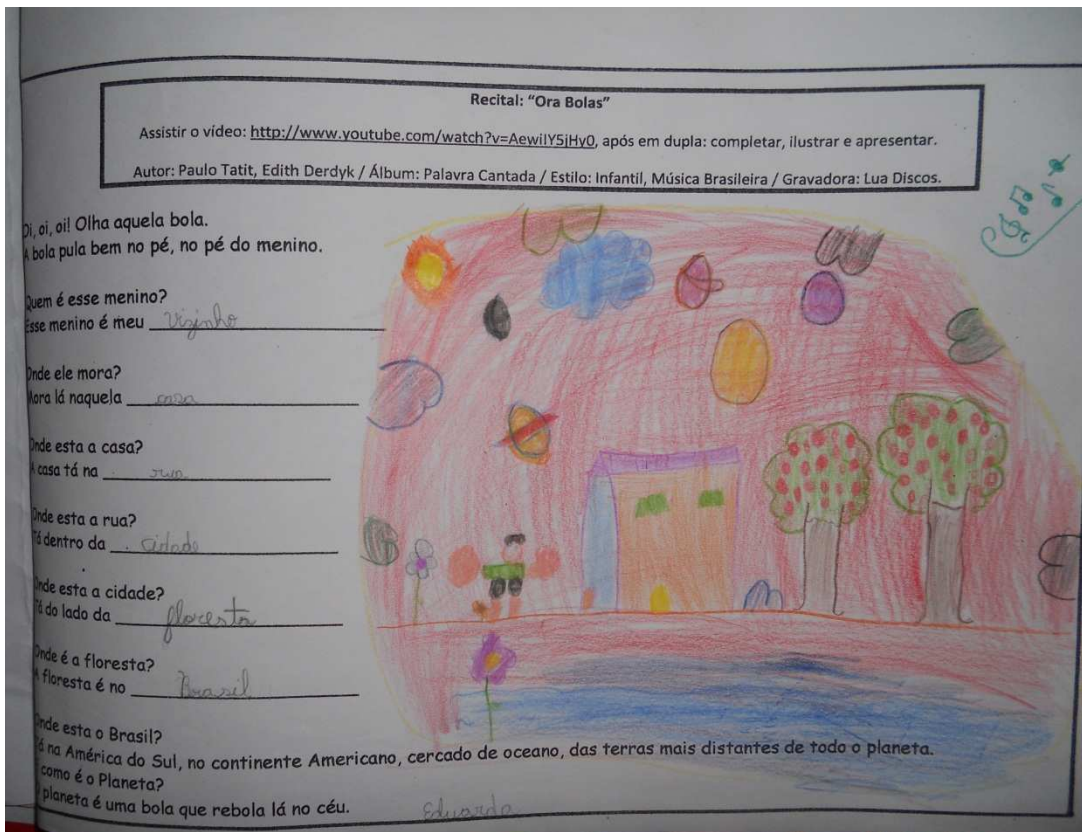 Recital: "Ora Bolas"
Assistir o vídeo: http://www.youtube.com/watch?v=AewiIY5jHy0, após em dupla: completar, ilustrar e apresentar.
Autor: Paulo Tatit, Edith Derdyk / Álbum: Palavra Cantada / Estilo: Infantil, Música Brasileira / Gravadora: Lua Discos.
Oi, oi, oi! Olha aquela bola.
A bola pula bem no pé, no pé do menino.
Quem é esse menino?
Esse menino é meu Vizinho
Onde ele mora?
Mora lá naquela casa
Onde esta a casa?
A casa tá na rua
Onde esta a rua?
Tá dentro da cidade
Onde esta a cidade?
Tá do lado da floresta
Onde é a floresta?
A floresta é no Brasil
Onde esta o Brasil?
Tá na América do Sul, no continente Americano, cercado de oceano, das terras mais distantes de todo o planeta.
como é o Planeta?
planeta é uma bola que rebola lá no céu.
Eduarda